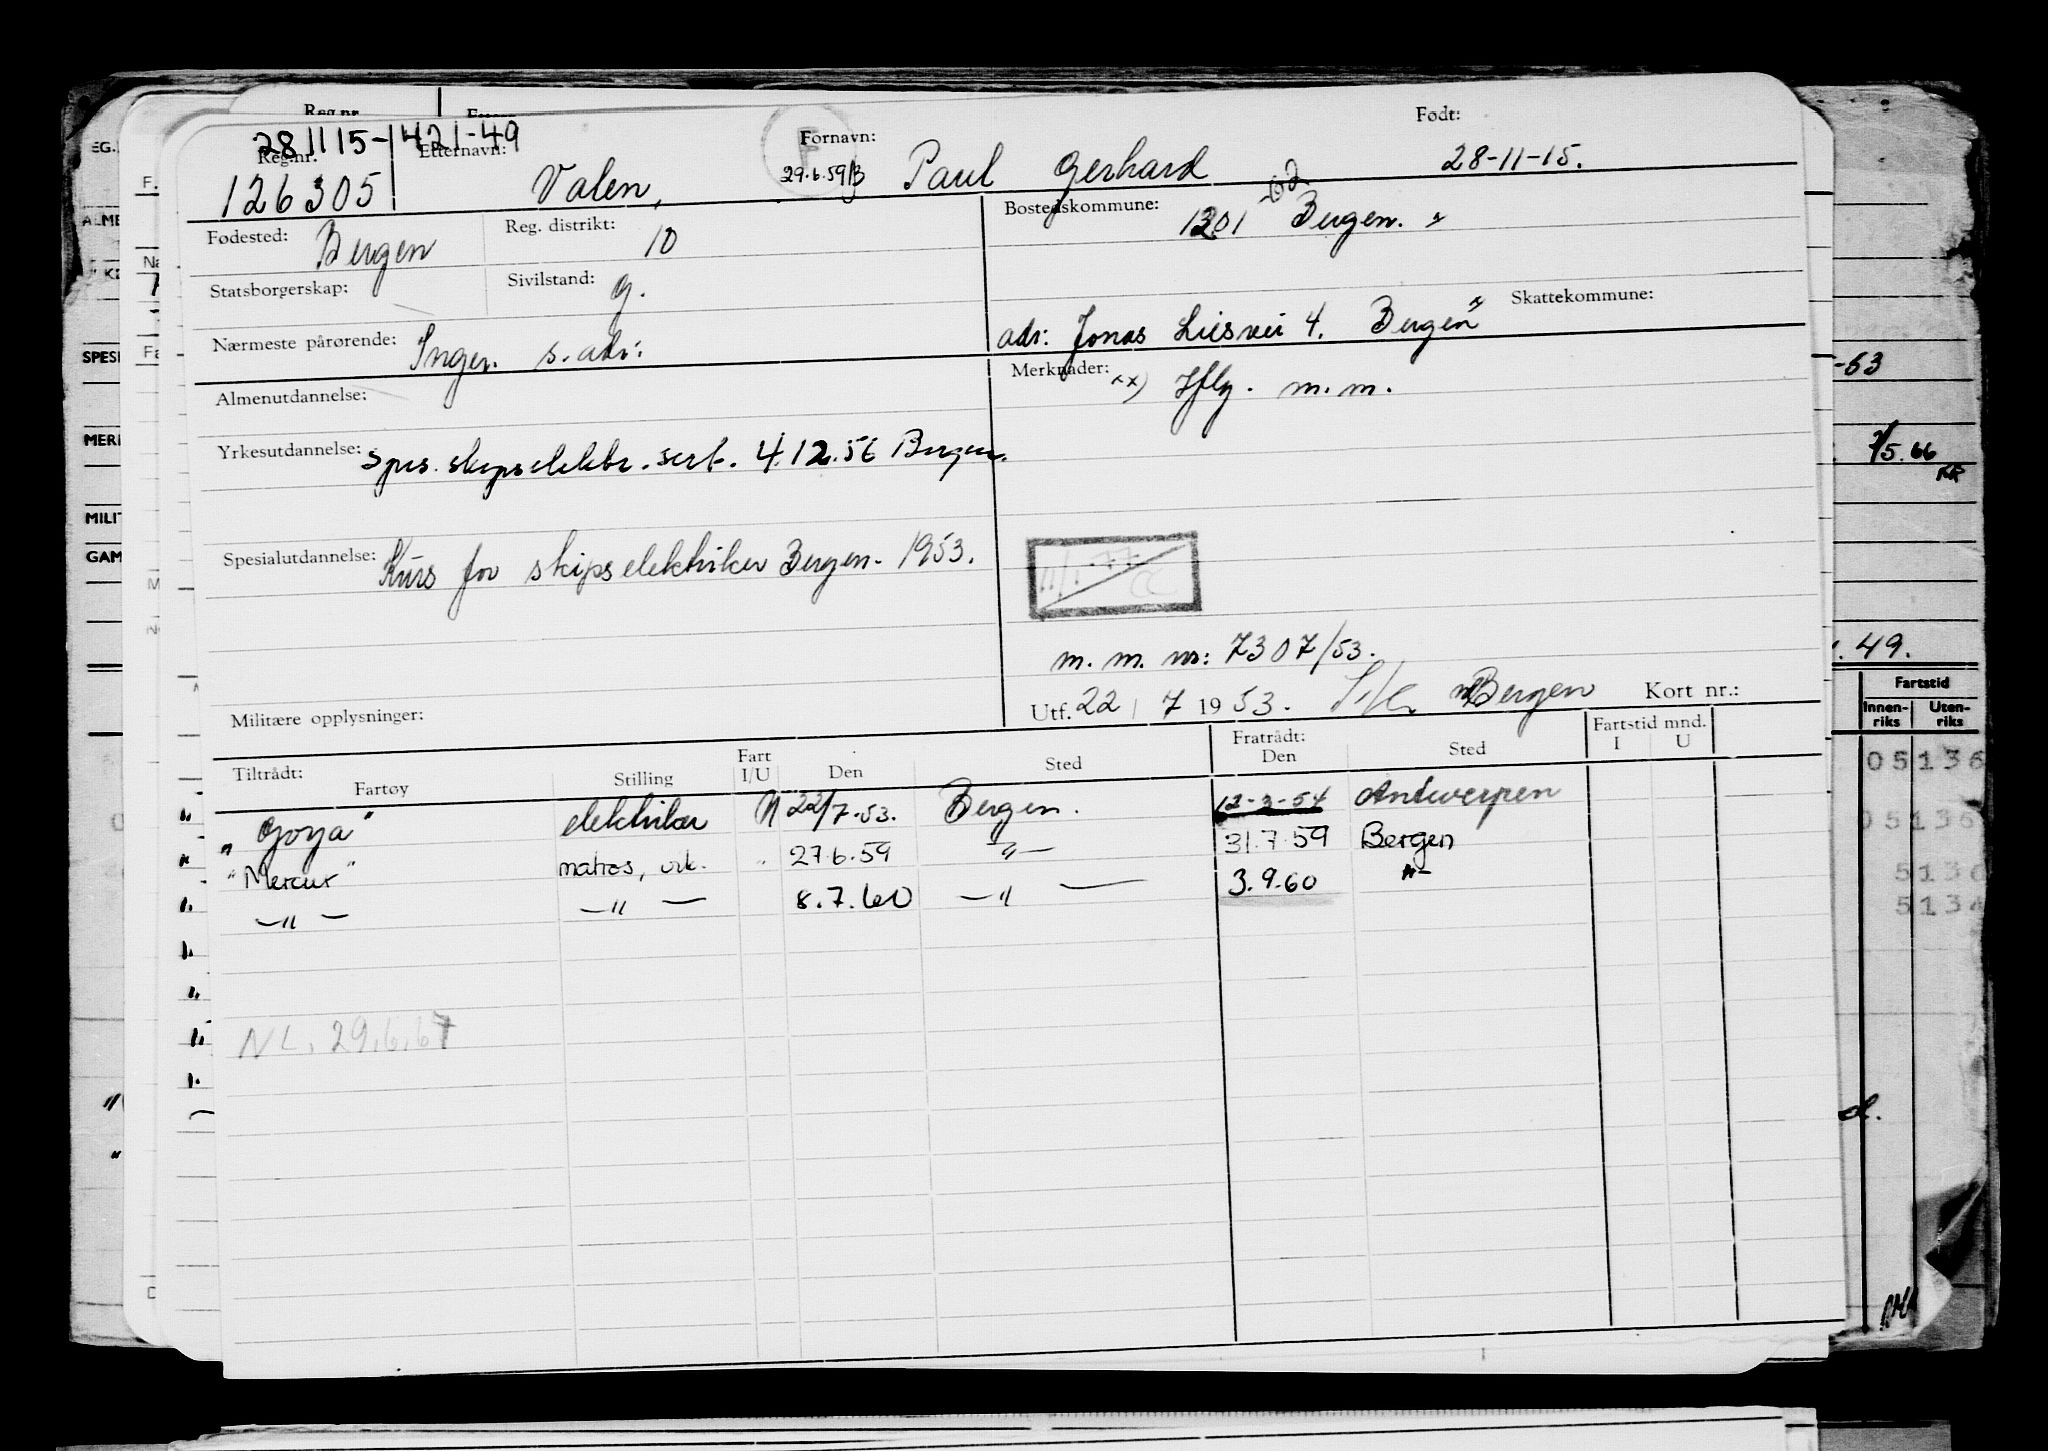 281115-1421-49
Reg.nr.
Etternavn:
Fornavn:
Født:
126305
Valen,
29.6.59
Paul Gerhard
28-11-15.
Fødested: Bergen
Reg. distrikt: 10
Bostedskommune: 1301 Bergen.
Statsborgerskap:
Sivilstand: g.
Nærmeste pårørende: Inger. s. adr:
adr: Jonas Liesvei 4. Bergen
Skattekommune:
Almenutdannelse:
Merknader: xx) m.m.
Yrkesutdannelse: Spes. skipselektr. sert. 4.12.56 Bergen.
Spesialutdannelse: Kurs for skipselektriker Bergen - 1953.
11/1-77
m. m. nr: 7307/53.
Militære opplysninger:
Utf. 22/7 1953. Bergen
Kort nr.:
Tiltrådt:
Fratrådt:
Fartstid mnd.
Fartøy
Stilling
Fart I/U
Den
Sted
Den
Sted
I
U
"Goya" elektriker U 22/7-53. Bergen. 12-3-54 Antwerpen
"Mercur" matros, vik. " 27.6.59 -"- 31.7.59 Bergen
-"- -"- 8.7.60 -"- 3.9.60 -"-
NL. 29.6.67
-63
/5.66
49.
Fartstid
Innen-riks
Uten-riks
05136
05136
5136
5134
SPES
MILIT
GAM